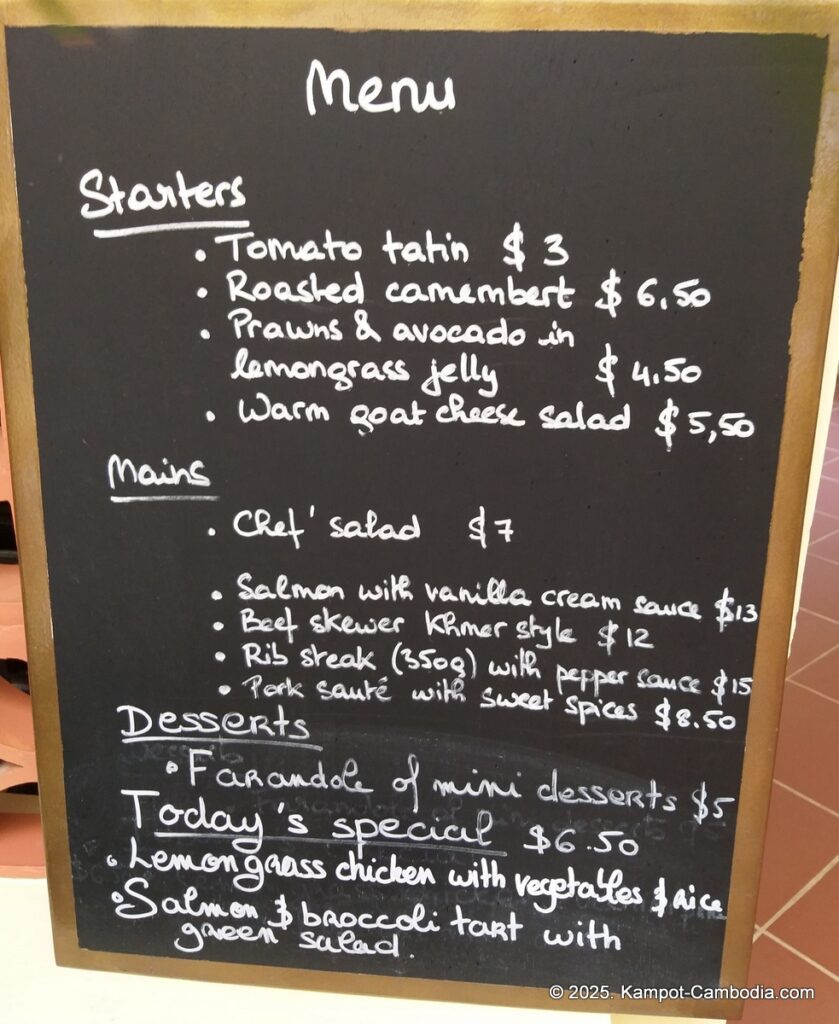 Menu
Starters
• Tomato tatin $ 3
• Roasted camembert $ 6,50
• Prawns & avocado in
lemongrass jelly $ 4.50
• Warm goat cheese salad $ 5,50
Mains
• Chef' salad $ 7
• Salmon with vanilla cream sauce $13
• Beef skewer Khmer style $ 12
• Rib steak (350g) with pepper sauce $15
• Pork sauté with sweet spices $8.50
Desserts
• Farandole of mini desserts $5
Today's special $6.50
• Lemongrass chicken with vegetables & rice
• Salmon & broccoli tart with
green salad.
© 2025. Kampot-Cambodia.com